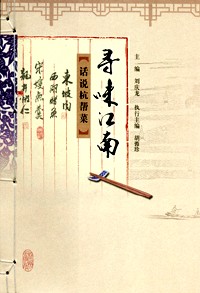 寻味江南
【话说杭帮菜】
主编 刘庆龙 执行主编 胡雅珍
东坡肉
西湖醋鱼
宋嫂鱼羹
龙井虾仁